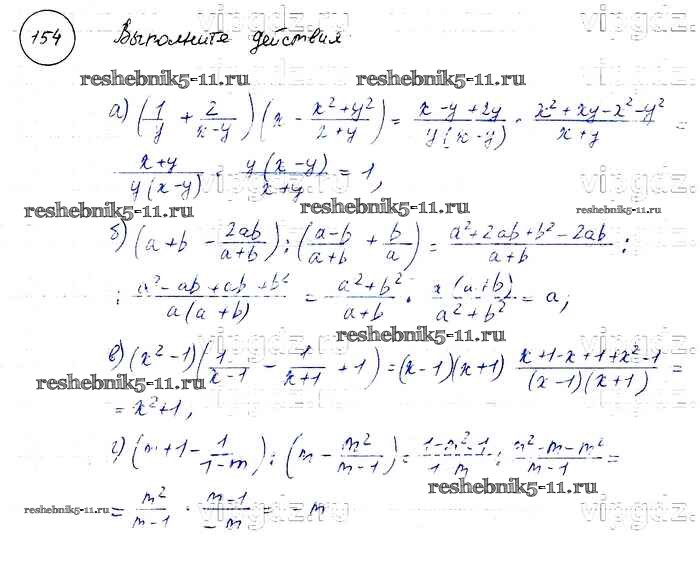 154 Выполните действия
reshebnik5-11.ru reshebnik5-11.ru
а) (1/y + 2/(x-y)) (x - (x²+y²)/(x+y)) = (x-y+2y)/(y(x-y)) · (x²+xy-x²-y²)/(x+y) =
(x+y)/(y(x-y)) · y(x-y)/(x+y) = 1,
reshebnik5-11.ru reshebnik5-11.ru reshebnik5-11.ru
б) (a+b - 2ab/(a+b)) : ((a-b)/(a+b) + b/a) = (a²+2ab+b²-2ab)/(a+b) :
: (a²-ab+ab+b²)/(a(a+b)) = (a²+b²)/(a+b) · a(a+b)/(a²+b²) = a;
reshebnik5-11.ru
в) (x²-1) (1/(x-1) - 1/(x+1) + 1) = (x-1)(x+1) (x+1-x+1+x²-1)/((x-1)(x+1)) =
reshebnik5-11.ru
= x²+1,
г) (m+1 - 1/(1-m)) : (m - m²/(m-1)) = (1-m²-1)/(1-m) : (m²-m-m²)/(m-1) =
reshebnik5-11.ru
= m²/(m-1) · (m-1)/(-m) = -m
reshebnik5-11.ru
vipgdz.ru